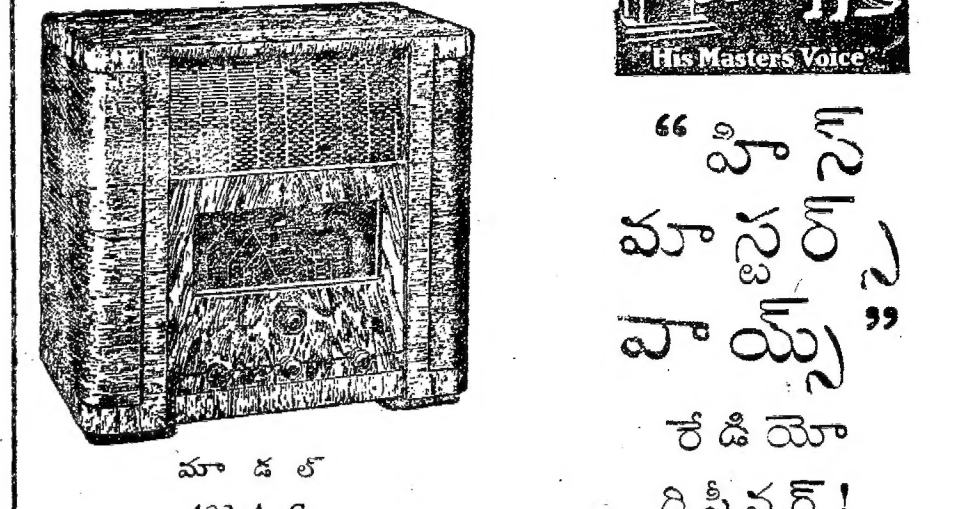 "His Masters Voice"
"హిస్
మాస్టర్స్
వాయ్స్"
రేడియో
రిసీవర్!
మాడల్